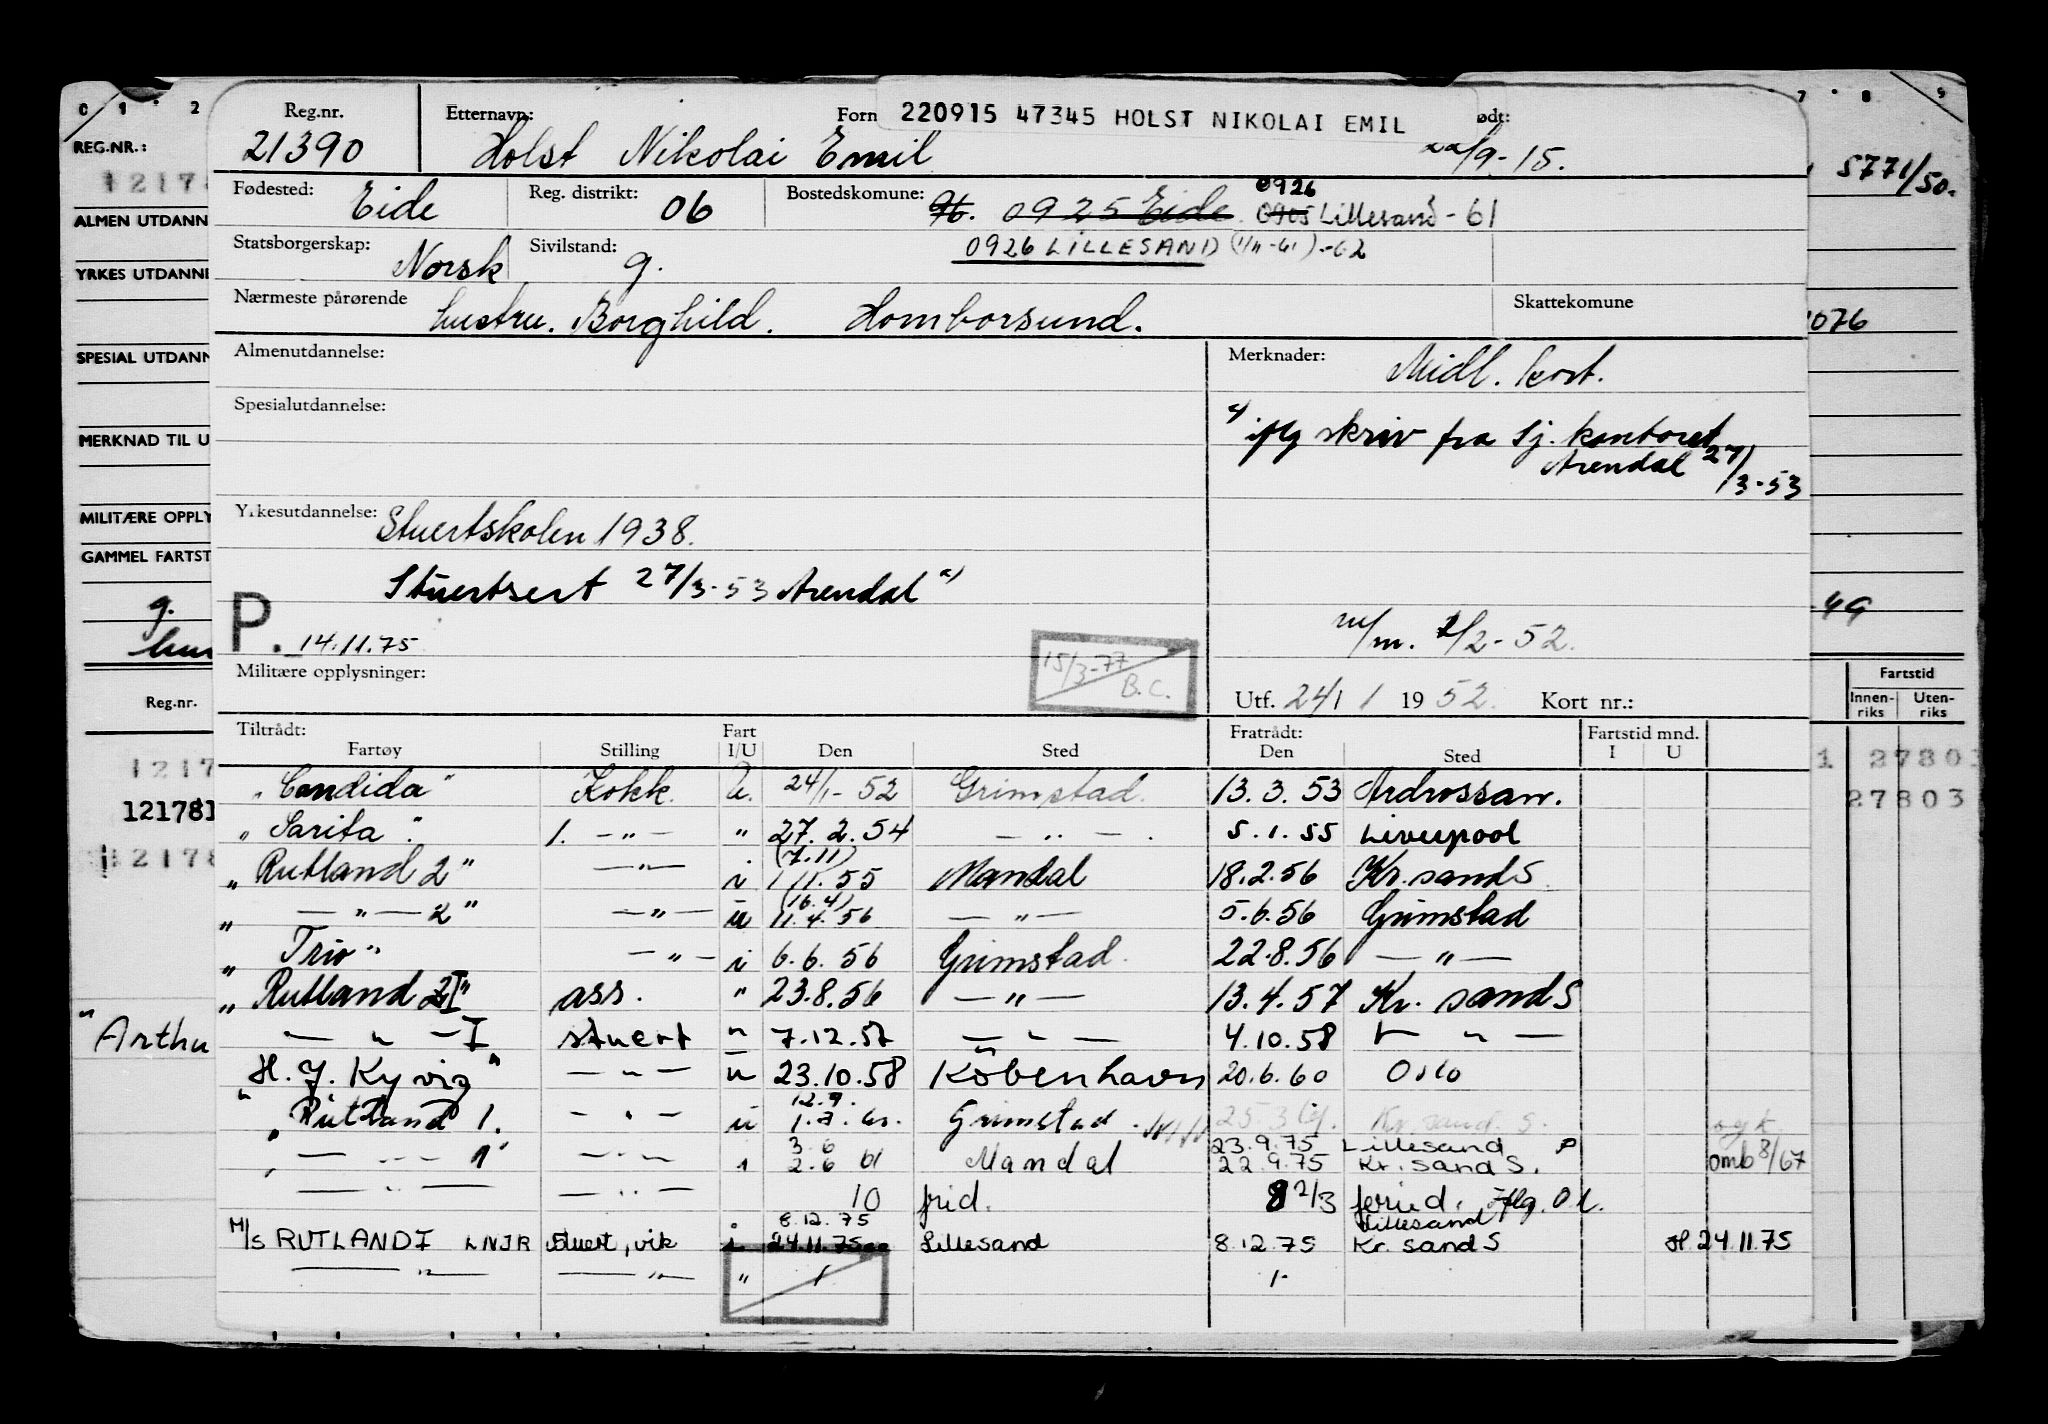 0 1 2 7 8 9
Reg.nr. Etternavn: Forn 220915 47345 HOLST NIKOLAI EMIL ødt:
REG.NR.: 21390 Holst Nikolai Emil 22/9-15. 5771/50.
1217
Fødested: Eide Reg. distrikt: 06 Bostedskomune: 0925 Eide. 0926 0905 Lillesand - 61
ALMEN UTDANN
Statsborgerskap: Norsk Sivilstand: g. 0926 LILLESAND (1/11-61) -62
YRKES UTDANNE
Nærmeste pårørende hustru. Borghild. Homborsund. Skattekomune
1076
Almenutdannelse: Merknader: Midl. kort.
SPESIAL UTDANN
Spesialutdannelse: x) iflg skriv fra Sj. kontoret
MERKNAD TIL U Arendal 27/3-53
Yrkesutdannelse: Stuertskolen 1938.
MILITÆRE OPPLY
GAMMEL FARTST
Stuertsert 27/3-53 Arendal x)
g. P. 14.11.75 m/m. 1/2-52. 49
hus
15/3-77 B.C.
Militære opplysninger: Utf. 24/1 1952. Kort nr.: Fartstid
Reg.nr. Innenriks Utenriks
Tiltrådt: Fart Fratrådt: Fartstid mnd.
Fartøy Stilling I/U Den Sted Den Sted I U
1217 "Candida" Kokk. u. 24/1-52 Grimstad. 13.3.53 Ardrossan. 1 27803
121781 27803
"Sarita". 1. -"- " 27.2.54 -"-. 5.1.55 Liverpool
1217 (7.11)
"Rutland 2" -"- i 1/11.55 Mandal 18.2.56 Kr.sand S.
(16.4)
" -"- 2" -"- u 11.4.56 -"- 5.6.56 Grimstad
"Trio" -"- i 6.6.56 Grimstad. 22.8.56 -"-
"Rutland I" ass. " 23.8.56 -"- 13.4.57 Kr. sand S
"Arthu -"- I stuert " 7.12.57 -"- 4.10.58 -"-
"H. J. Kyvig" -"- u 23.10.58 København 20.6.60 Oslo
12.9.
"Rutland 1. -"- u Grimstad. Kr.sand. S.
3.6 23.9.75 Lillesand P
" -"- 1" -"- i 2.6 61 Mandal 22.9.75 Kr. sand S. omb 8/67
-"- -"- 10 frid. 8 2/3 feried. iflg. O.l.
8.12.75 Lillesand
M/S RUTLAND I LNJR stuert, vik i 24.11.75 Lillesand 8.12.75 Kr. sand S H. 24.11.75
-"- -"- " 1 1-